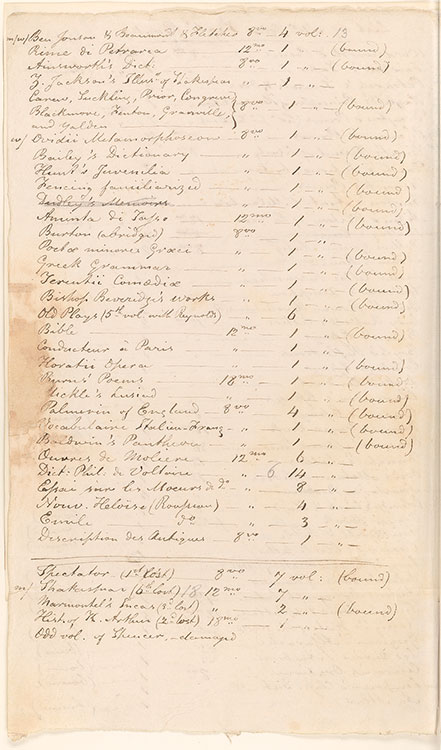 m/m/ Ben Jonson & Beaumont & Fletcher 8vo – 4 vol: 13
Rime di Petrarca 12mo – 1 – „ – (bound)
Ainsworth's Dict: 8vo – 1 – „ – (bound)
Z. Jackson's Illus: of Shakespear „ 1 – „ –
Carew, Suckling, Prior, Congreve
Blackmore, Fenton, Granville, } 8vo 1 – „ – (bound)
and Yalden
m/ Ovidii Metamorphoseon 8vo – 1 – „ – (bound)
Bailey's Dictionary – „ – 1 – „ – (bound)
Hunt's Juvenilia – „ – 1 – „ – (bound)
Fencing familiarized – „ – 1 – „ – (bound)
Dudley's Memoirs – „ – 1 – „ – (bound)
Aminta di Tasso – 12mo – 1 – „ – (bound)
Burton (abridged) 8vo – 1 – „
Poetæ minores Græci – „ – 1 – „ – (bound)
Greek Grammar – „ – 1 – „ – (bound)
Terentii Comædiæ – „ – 1 – „ – (bound)
Bishop Beveridge's works – „ – 1 – „ – (bound)
Old Plays (5th vol. with Reynolds) „ 6 – „
Bible – 12mo – 1 – „ – (bound)
Conducteur à Paris – „ – 1 – „ –
Horatii Opera – „ – 1 – „ – (bound)
Burns's Poems – 18mo – 1 – „ – (bound
Mickle's Lusiad – „ – 1 – „ – (bound)
Palmerin of England – 8vo – 4 – „ – (bound)
Vocabulaire Italien-Franç – „ – 1 – „ – (bound)
Baldwin's Pantheon – „ – 1 – „ – (bound)
Œuvres de Moliere – 12mo – 6 – „ –
Dict: Phil. de Voltaire – „ – 6 14 – „ –
Essai sur les Moeurs de do „ – 8 – „ –
Nouv. Heloise (Rousseau) – „ – 4 – „ –
Emile do – „ – 3 – „ –
Description des Antiques 8vo – 1 – „ –
Spectator – (1st lost) 8vo – 7 vol: (bound)
m/ Shakespear (6th lost) / 8 12mo – 7 – „
Marmontel's Incas (3d lost) „ – 2 – „ – (bound)
Hist. of K. Arthur (2d lost) 18mo – 1 – „ –
Odd vol. of Spencer, – damaged